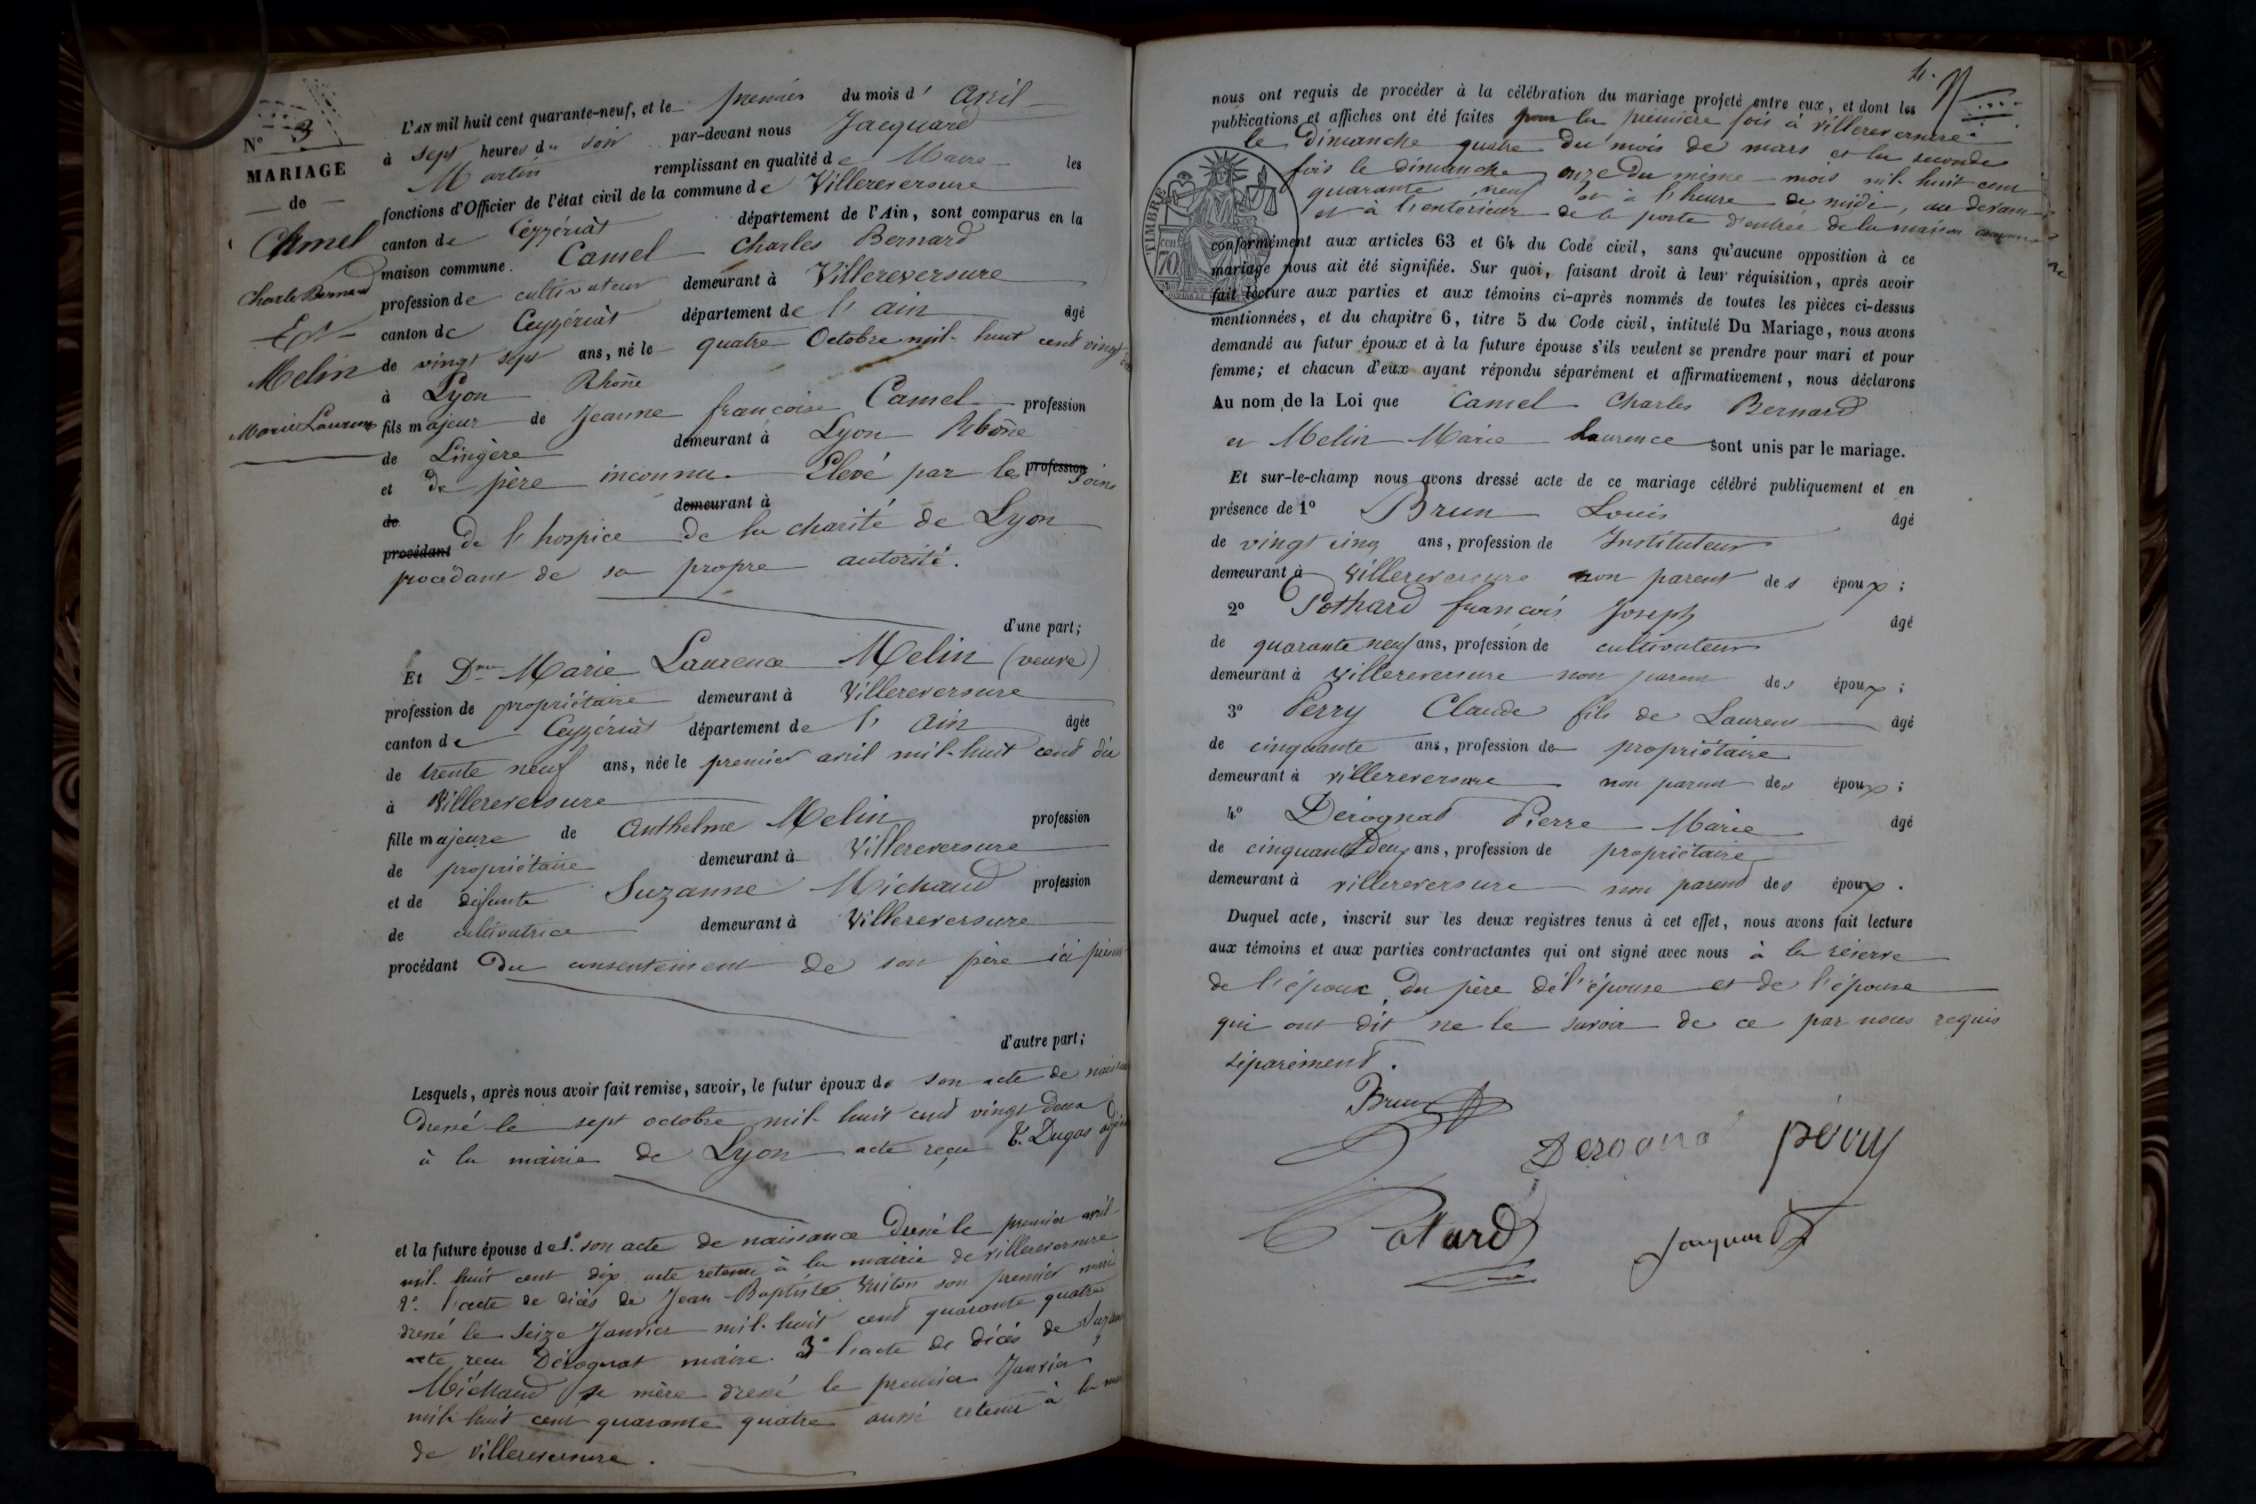 N° 3
MARIAGE
de
Camel
Charles Bernard
Et
Melin
Marie Laurence
L'AN mil huit cent quarante-neuf, et le premier du mois d' avril
à sept heures du soir par-devant nous Jacquard
Martin remplissant en qualité de Maire les
fonctions d'Officier de l'état civil de la commune de Villereversure
canton de Ceyzériat département de l'Ain, sont comparus en la
maison commune. Camel Charles Bernard
profession de cultivateur demeurant à Villereversure
canton de Ceyzériat département de l'ain âgé
de vingt sept ans, né le quatre Octobre mil huit cent vingt
à Lyon Rhône
fils majeur de Jeanne françoise Camel profession
de Lingère demeurant à Lyon Rhône
et de père inconnu. Elevé par les profession soins
de demeurant à
procédant de l'hospice de la charité de Lyon
procedant de sa propre autorité.
d'une part;
Et Dme Marie Laurence Melin (veuve)
profession de propriétaire demeurant à Villereversure
canton de Ceyzériat département de l'ain âgée
de trente neuf ans, née le premier avril mil-huit cent dix
à Villereversure
fille majeure de Anthelme Melin profession
de propriétaire demeurant à Villereversure
et de défunte Suzanne Michaud profession
de cultivatrice demeurant à Villereversure
procédant du consentement de son père ici présent
d'autre part;
Lesquels, après nous avoir fait remise, savoir, le futur époux de son acte de naissance
dressé le sept octobre mil-huit cent vingt deux
à la mairie de Lyon acte reçu T. Dugas adjoint
et la future épouse de 1° son acte de naissance dressé le premier avril
mil-huit cent dix acte retenu à la mairie de villereversure
2° l'acte de décès de Jean-Baptiste son premier mari
dressé le seize Janvier mil-huit cent quarante quatre
acte reçu Dérognat maire. 3° l'acte de décès de Suzanne
Michaud sa mère dressé le premier Janvier
mil-huit cent quarante quatre aussi retenu à la
de villereversure.
4.
nous ont requis de procéder à la célébration du mariage projeté entre eux, et dont les
publications et affiches ont été faites pour la première fois à villereversure
le dimanche quatre du mois de mars et la seconde
fois le dimanche onze du même mois mil-huit cent
quarante neuf et à l'heure de midi, au devant
et à l'entérieur de la porte d'entrée de la maison commune
TIMBRE
70
conformément aux articles 63 et 64 du Code civil, sans qu'aucune opposition à ce
mariage nous ait été signifiée. Sur quoi, faisant droit à leur réquisition, après avoir
fait lecture aux parties et aux témoins ci-après nommés de toutes les pièces ci-dessus
mentionnées, et du chapitre 6, titre 5 du Code civil, intitulé Du Mariage, nous avons
demandé au futur époux et à la future épouse s'ils veulent se prendre pour mari et pour
femme; et chacun d'eux ayant répondu séparément et affirmativement, nous déclarons
Au nom de la Loi que Camel Charles Bernard
et Melin Marie Laurence sont unis par le mariage.
Et sur-le-champ nous avons dressé acte de ce mariage célébré publiquement et en
présence de 1° Brun Louis âgé
de vingt cinq ans, profession de Instituteur
demeurant à Villereversure non parent des époux;
2° Pothard françois Joseph âgé
de quarante neuf ans, profession de cultivateur
demeurant à villereversure non parent des époux;
3° Perry Claude fils de Laurent âgé
de cinquante ans, profession de propriétaire
demeurant à villereversure non parent des époux;
4° Dérognat Pierre Marie âgé
de cinquante deux ans, profession de propriétaire
demeurant à villereversure non parent des époux.
Duquel acte, inscrit sur les deux registres tenus à cet effet, nous avons fait lecture
aux témoins et aux parties contractantes qui ont signé avec nous à la réserve
de l'époux, du père de l'épouse et de l'épouse
qui ont dit ne le savoir de ce par nous requis
séparément.
Brun
Derognat pérry
Potard Jacquard